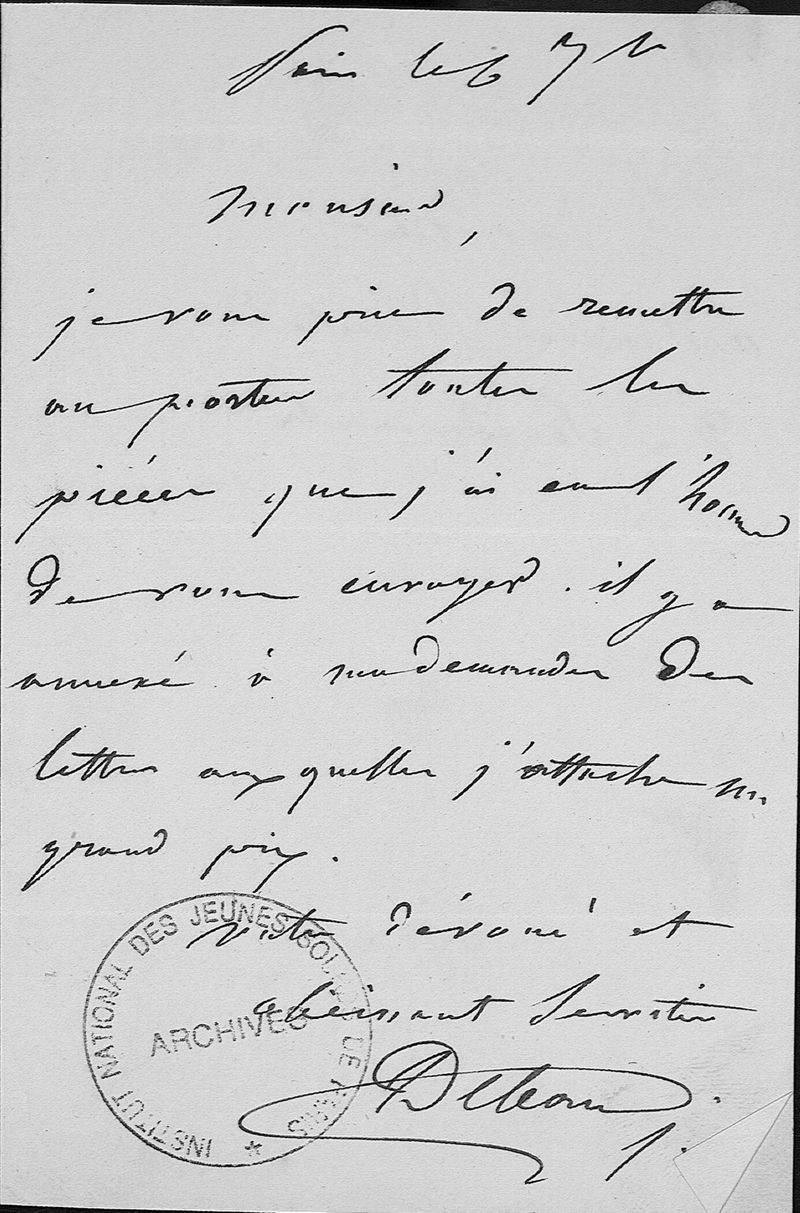 Paris le 6 7bre
Monsieur,
je vous prie de remettre
au porteur toutes les
pièces que j'ai eu l'honneur
de vous envoyer. il y a
annexé à ma demande des
lettres auxquelles j'attache un
grand prix.
votre dévoué et
obéissant serviteur
INSTITUT NATIONAL DES JEUNES SOURDS DE PARIS
ARCHIVES